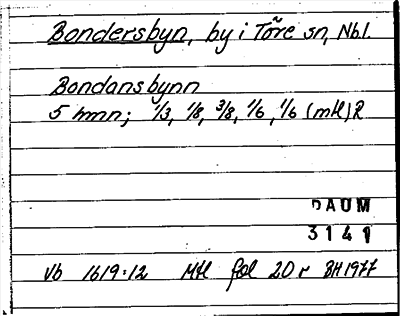 Bondersbyn, by i Töre sn, Nbl.
Bondansbynn
5 hmn; 1/3, 1/8, 3/8, 1/6, 1/6 (mtl) R
DAUM
3141
Vb 1619:12 Mtl fol 20 r BH 1977